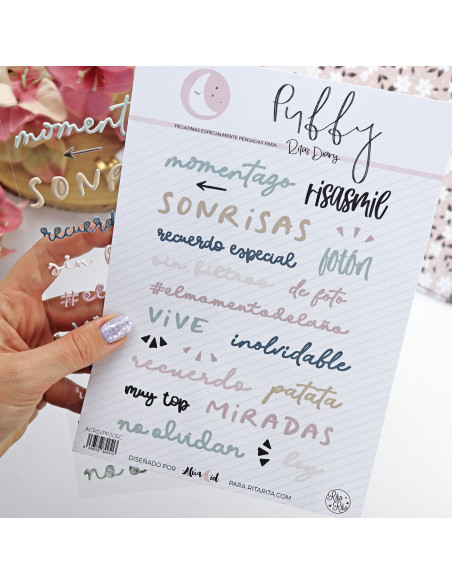 Puffy
PEGATINAS ESPECIALMENTE PENSADAS PARA Rita's Diary
momentazo
risasmil
SONRISAS
recuerdo especial
fotón
sin filtros
de foto
#elmomentodelaño
ViVE
inolvidable
recuerdo
patata
muy top
MiRADAS
no olvidar
hoy
DISEÑADO POR
PARA RITARITA.COM
Rita Rita
moment
SONR
recuerdo
sin f
#el
no o